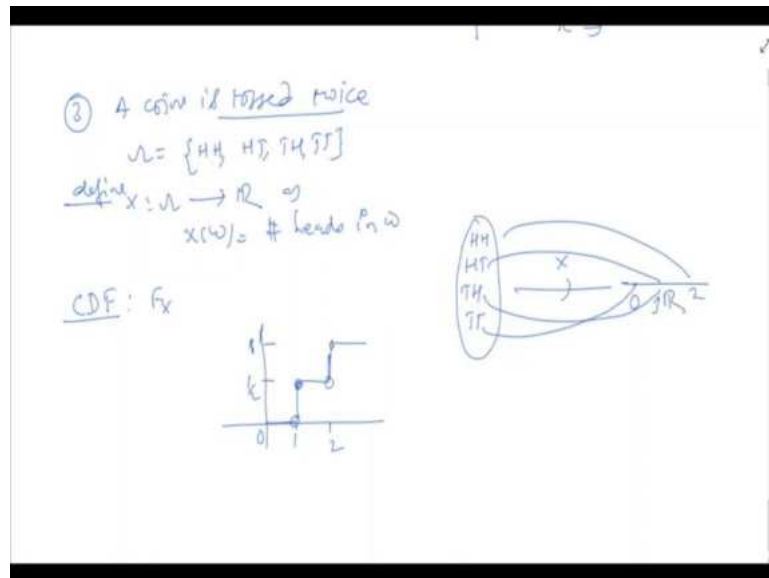 ③ A coin is tossed twice
Ω = {HH, HT, TH, TT}
define X : Ω → ℝ as
X(ω) = # heads in ω
HH
HT
TH
TT
X
0 1 ℝ 2
CDF : Fx
1
0 1 2